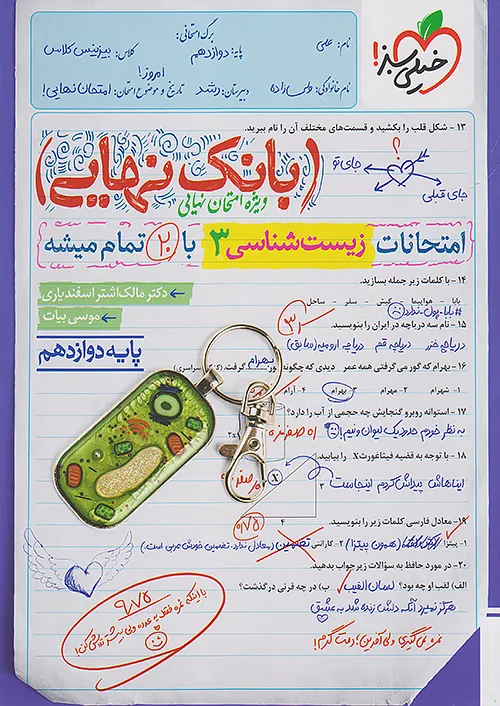 خیلی سبز!
برگ امتحانی:
نام: علی
پایه: دوازدهم
کلاس: بیزینس کلاس
نام خانوادگی: ولی‌زاده
دبیرستان: رشد
تاریخ و موضوع امتحان: امتحان نهایی!
امروز!
۱۳ - شکل قلب را بکشید و قسمت‌های مختلف آن را نام ببرید.
؟
جای تو
جای قبلی
(بانک نهایی)
ویژه امتحان نهایی
امتحانات زیست‌شناسی ۳ با ۲۰ تمام میشه
۱۴ - با کلمات زیر جمله بسازید.
بابا - هواپیما - کیش - سفر - ساحل
#بابا-پول-ندارد
← دکتر مالک‌اشتر اسفندیاری
← موسی بیات
۱۵ - نام سه دریاچه در ایران را بنویسید.
دریاچه خزر دریاچه قم دریاچه ارومیه (سابق)
پایه دوازدهم
۱۶ - بهرام که گور می‌گرفتی همه عمر دیدی که چگونه گور بهرام گرفت.
۱- شهرام ۲- مهرام ۳- بهرام ۴- آرام
۱۷ - استوانه روبرو گنجایش چه حجمی از آب را دارد؟
به نظر خودم حدود یک لیوان و نیم!
۱۸ - با توجه به قضیه فیثاغورث X را بیابید.
ایناهاش پیداش کردم اینجاست
X
۳
۴
۱۹- معادل فارسی کلمات زیر را بنویسید.
۱- پیتزا (همون پیتزا) ۲- گارانتی تضمین (معادل ندارد، تضمین خودش عربی است.)
۲۰ - در مورد حافظ به سؤالات زیر جواب بدهید.
الف) لقب او چه بود؟ لسان‌الغیب ب) در چه قرنی درگذشت؟
هرگز نمیرد آنکه دلش زنده شد به عشق
نمره نمی‌گیری ولی آفرین؛ دمت گرم!
۹/۷۵
با اینکه نمره فقط یه عدده ولی بیشتر تلاش کن!